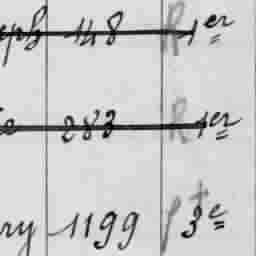 148 R 1er
283 R 1er
ry 1199 P 3e